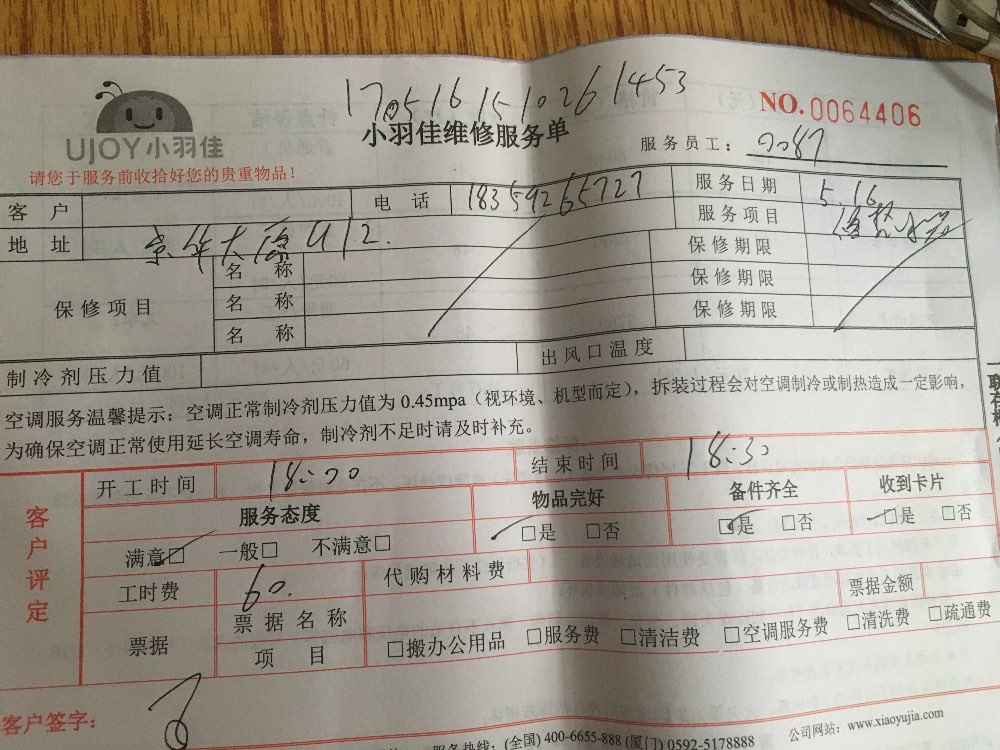 170516151026 1453
NO.0064406
UJOY小羽佳
小羽佳维修服务单
服务员工：0087
请您于服务前收拾好您的贵重物品！
客 户 电 话 18359265727 服务日期 5.16
地 址 京华大厦U12. 服务项目
保修项目 名 称 保修期限
名 称 保修期限
名 称 保修期限
制冷剂压力值 出风口温度
空调服务温馨提示：空调正常制冷剂压力值为 0.45mpa（视环境、机型而定），拆装过程会对空调制冷或制热造成一定影响，
为确保空调正常使用延长空调寿命，制冷剂不足时请及时补充。
客户评定
开工时间 18:00 结束时间 18:30
服务态度 物品完好 备件齐全 收到卡片
满意□ 一般□ 不满意□ □是 □否 □是 □否 □是 □否
工时费 60. 代购材料费
票据 票据名称 票据金额
项 目 □搬办公用品 □服务费 □清洁费 □空调服务费 □清洗费 □疏通费
客户签字：
服务热线：(全国) 400-6655-888 (厦门) 0592-5178888 公司网站：www.xiaoyujia.com